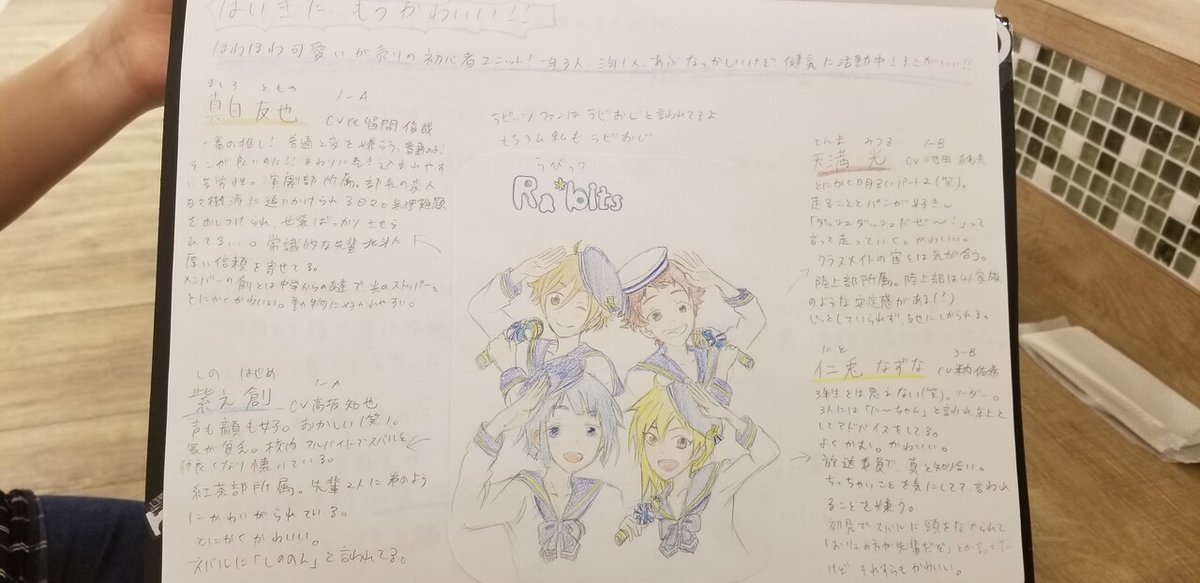 はいきた、もうかわいい!!
ほわほわ可愛いが売りの初心者ユニット!一年3人 三年1人、あぶなっかしいけど 健気に活動中!そこがいい!!
ラビッツファンは ラビおじと言われてるよ
もちろん私も ラビおじ
らびっつ
Ra*bits
ましろ ともや
真白 友也 1-A
CV 比留間 俊哉
一番の推し!普通と変を嫌う、普通だよ!
そこが良いのに!! まわりに巻き込まれやす
い苦労性。演劇部所属。部長の変人
日々樹渉に追いかけられる日々。無理難題
をおしつけられ、女装ばっかりさせら
れてる…。常識的な先輩北斗に
厚い信頼を寄せてる。
メンバーの創とは中学からの友達で、光のストッパー。
とにかくかわいい。動物に好かれやすい。
しの はじめ
紫之 創 1-A
CV 高坂知也
声も顔も女子。おかしい(笑)。
家が貧乏。校内アルバイトでスバルと
仲良くなり懐いている。
紅茶部所属。先輩2人に弟のよう
にかわいがられている。
とにかくかわいい。
スバルに「しののん」と言われてる。
てんま みつる 1-B
天満 光 CV 池田 純矢
とにかく明るいパート2(笑)。
走ることとパンが好き
「ダッシュダッシュだぜ〜!」って
言って走っていく。かわいい。
クラスメイトの宙とは気が合う。
陸上部所属。陸上部は4人家族
のような安定感がある(?)
じっとしていられず、友也にしかられる。
にと 3-B
仁兎 なずな CV 米内 佑希
3年生とは思えない(笑)。リーダー。
3人には「に〜ちゃん」と言われ、年上と
してアドバイスをしてる。
よくかむ。かわいい。
放送委員で、真と知り合い。
ちっちゃいことを気にしてて、言われ
ることを嫌う。
初見でスバルに頭をなでられて
「おりぇの方が先輩だぞ」とか言ってた
けど、それすらもかわいい。